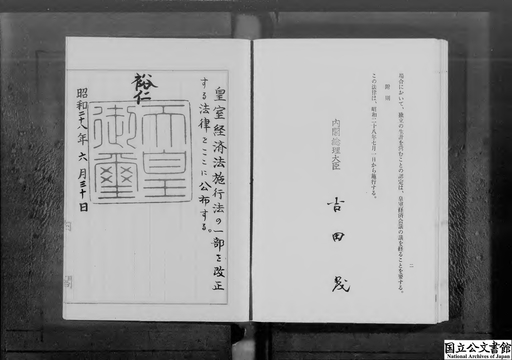 場合において、独立の生計を営むことの認定は、皇室経済会議の議を経ることを要する。
附則
この法律は、昭和二十八年七月一日から施行する。
二
内閣総理大臣
吉田茂
皇室経済法施行法の一部を改正
する法律をここに公布する。
裕仁
天皇御璽
昭和二十八年六月三十日
国立公文書館
National Archives of Japan